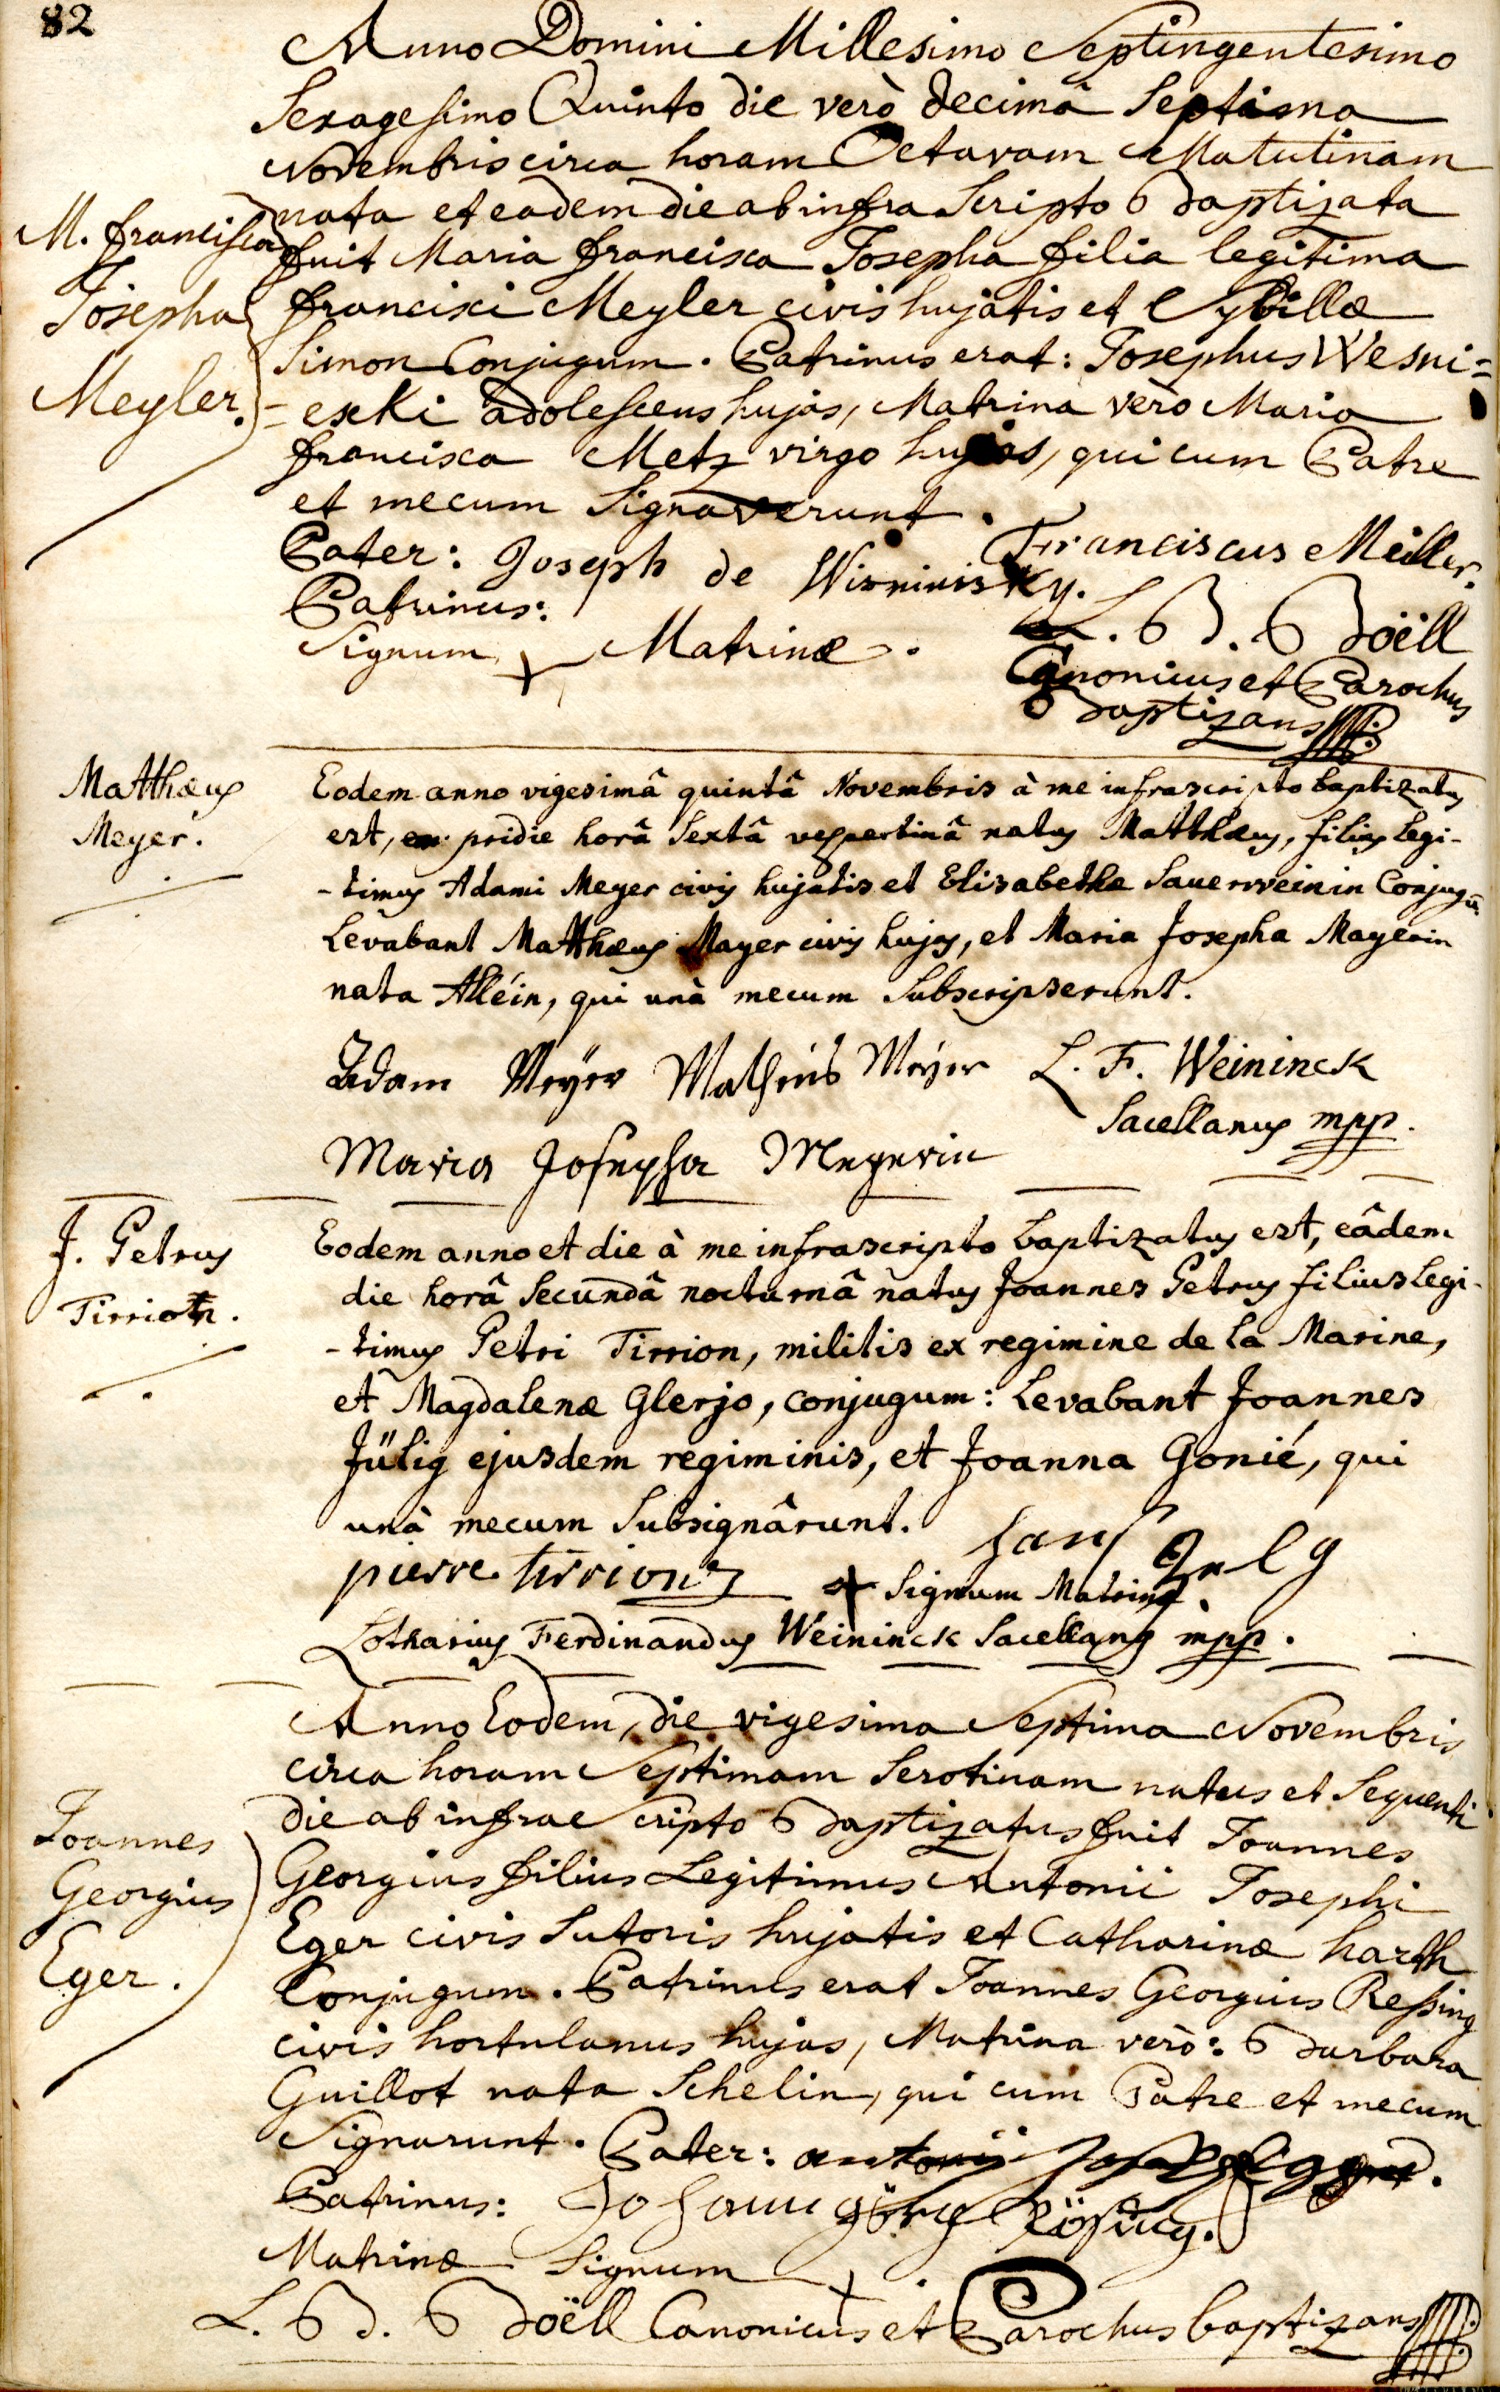 82
Anno Domini Millesimo Septingentesimo
Sexagesimo Quinto die verò decimâ Septima
Novembris circa horam Octavam Matutinam
nata et eadem die ab infra Scripto Baptizata
M. francisca
Josepha
Meyler.
fuit Maria francisca Josepha filia legitima
francisci Meyler civis hujatis et Sybillæ
Simon Conjugum. Patrinus erat: Josephus Wesni=
=exki adolescens hujas, Matrina verò Maria
francisca Metz virgo hujas, qui cum Patre
et mecum Signaverunt.
Pater: Franciscus Meiller.
Patrinus: Joseph de Wisninisky.
Signum + Matrinæ.
L. B. Boëll
Canonicus et Parochus
Baptizans
Matthæus
Meyer.
Eodem anno vigesimâ quintâ Novembris à me infrascripto baptizatus
est, pridie horâ Sextâ vespertinâ natus Matthæus, filius Legi-
-timus Adami Meyer civis hujatis et Elisabethæ Sauerweinin Conjugū.
Levabant Matthæus Mayer civis hujas, et Maria Josepha Mayerin
nata Alléin, qui unà mecum Subscripserunt.
Adam Meÿer Matheus Meÿer L. F. Weininck
Sacellanus mpp.
Maria Josepha Meyerin
J. Petrus
Tirrion.
Eodem anno et die à me infrascripto baptizatus est, eâdem
die horâ Secundâ nocturnâ natus Joannes Petrus filius Legi-
-timus Petri Tirrion, militis ex regimine de la Marine,
et Magdalenæ Glerjo, conjugum: Levabant Joannes
Jülig ejusdem regiminis, et Joanna Gonié, qui
unà mecum Subsignârunt.
pierre tirrion
+ Signum Matrinæ.
Lotharius Ferdinandus Weininck Sacellanus mpp.
Joannes
Georgius
Eger.
Anno Eodem, die vigesima Septima Novembris
circa horam Septimam Serotinam natus et Sequenti
die ab infrae Scripto Baptizatus fuit Joannes
Georgius filius Legitimus Antonii Josephi
Eger civis Sutoris hujatis et Catharinæ harth
Conjugum. Patrinus erat Joannes Georgius Reßing
civis hortulanus hujas, Matrina verò: Barbara
Guillot nata Schelin, qui cum Patre et mecum
Signarunt. Pater: antonij
Patrinus: Johann görg Rößing.
Matrinæ Signum +.
L. B. Boëll Canonicus et Parochus baptizans